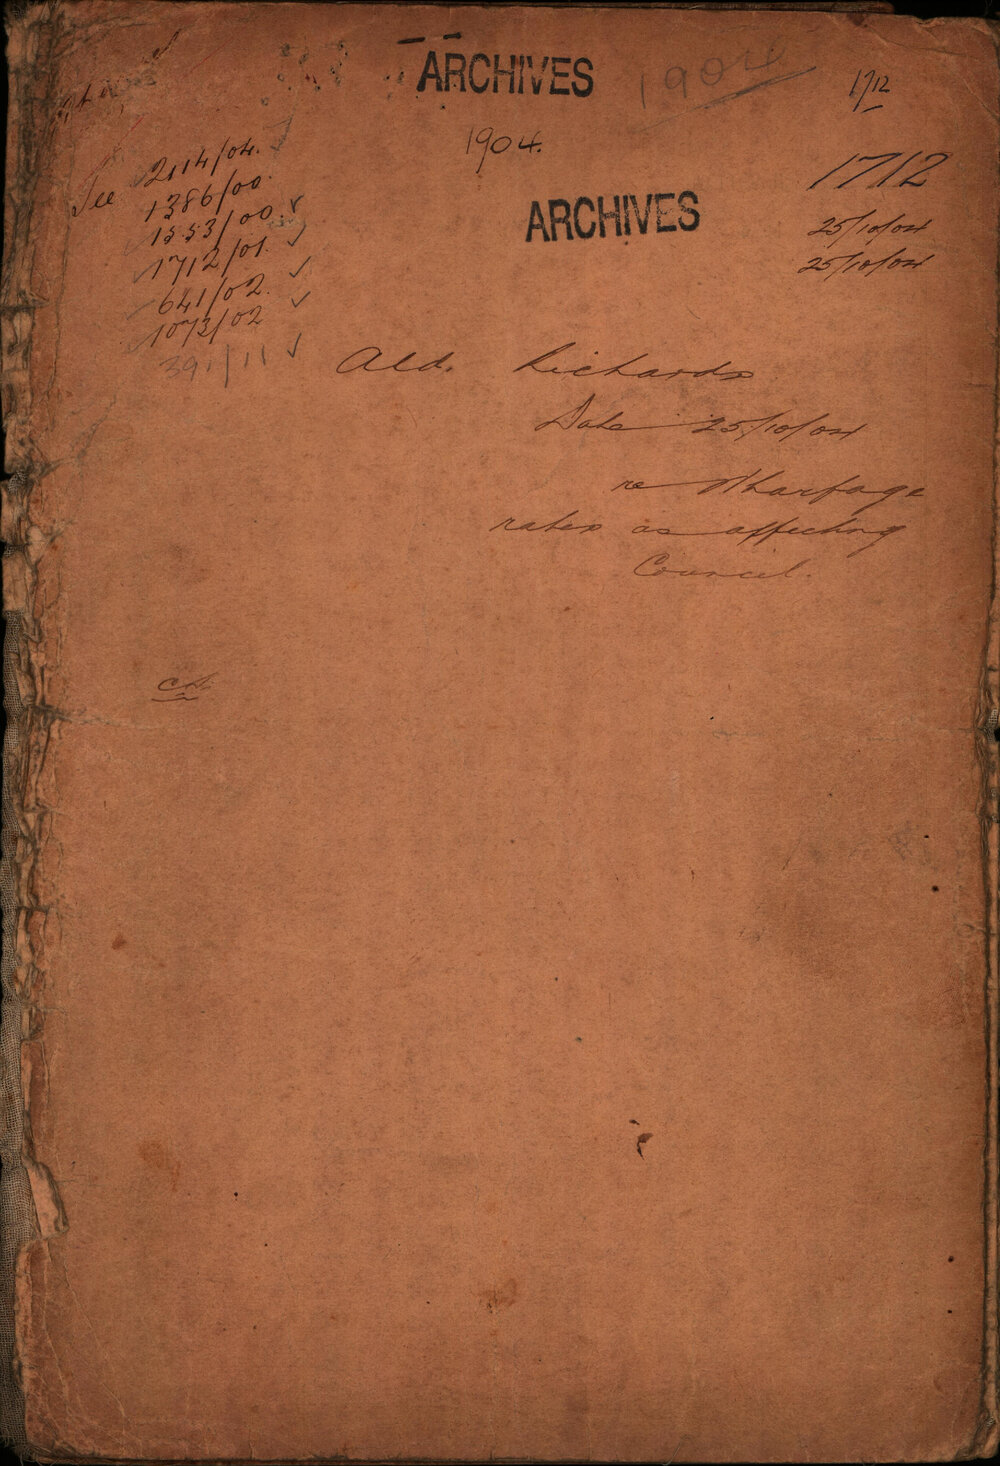 ARCHIVES
1904
1712
1904.
1712
ARCHIVES
25/10/04
25/10/04
See 2114/04.
1386/00
1553/00
1712/01.
641/02.
1073/02
391/11
Ald. Richards
Date 25/10/04
re Wharfage
rates as affecting
Council.